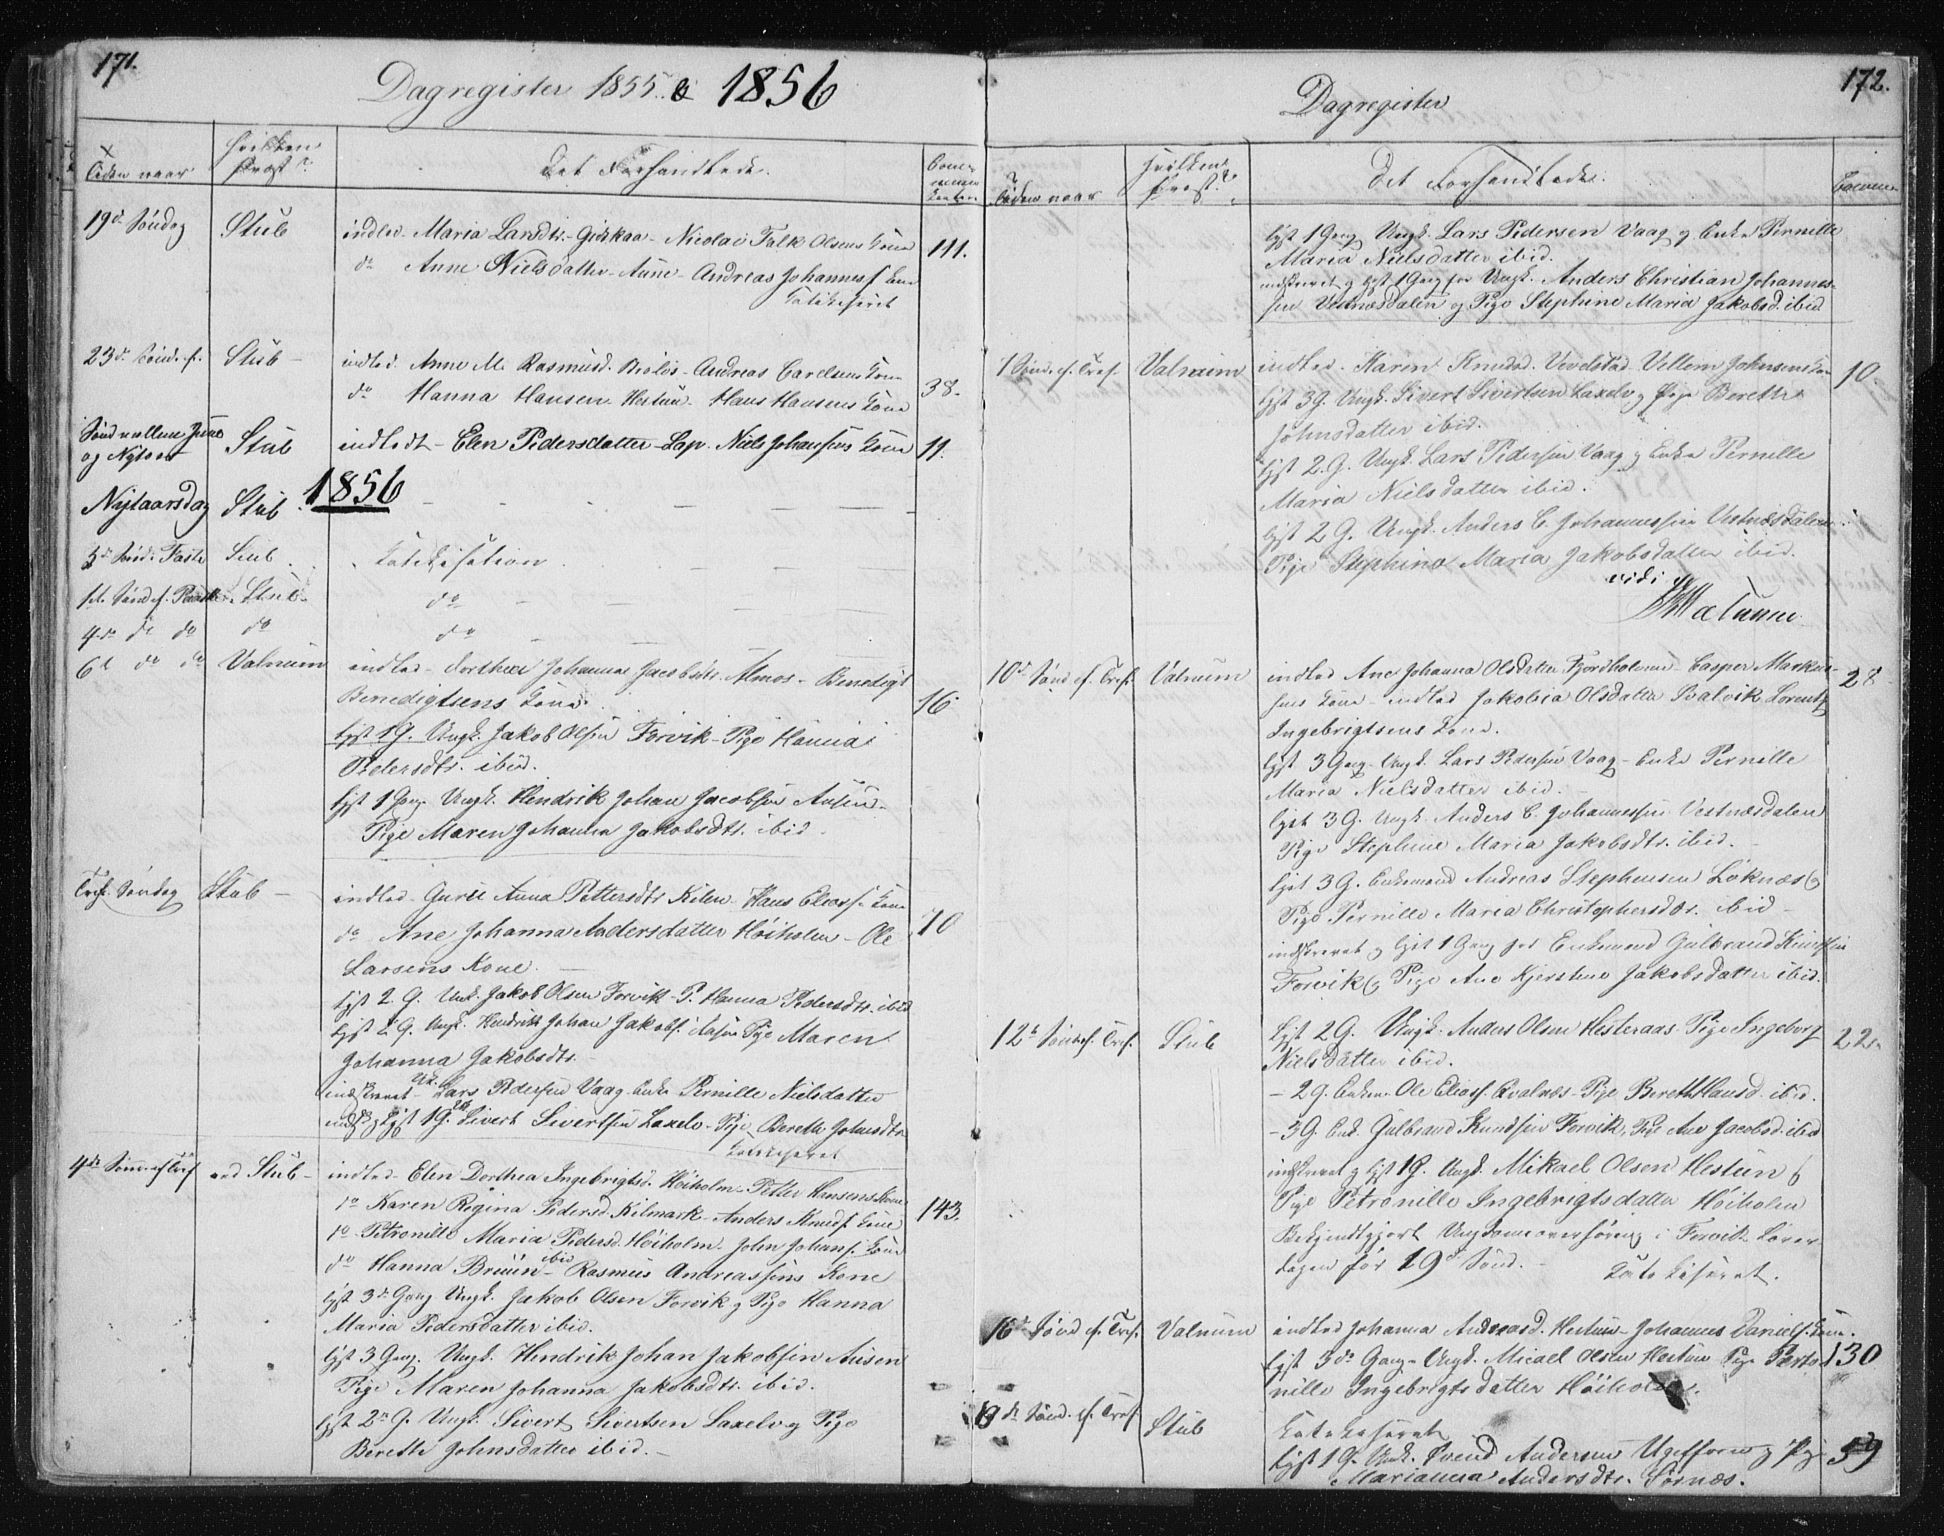 171.
Dagregister 1855. & 1856
Tiden naar
Hvilken Præst?
Det Forhandlede.
19de Søndag
Stub
indled. Maria Larsdtr. Gidskaa - Nicolai Falk Olsens Kone
111.
do Anne Nielsdatter - Aune - Andreas Johanness. Kone
Katikeseret
23de Sønd. f.
Stub -
indled. Anne M. Rasmusd. - Andreas Carelsens Kone
do Hanna Hansen Hestun - Hans Hansens Kone
38.
Sønd mellem Juul
og Nytaar
Stub
indledt - Elen Pedersdatter - Lap. Niels Johansens Kone
11.
1856
Nytaarsdag
Stub
3de Sønd i Faste
Stub.
Katekisation
1ste Sønd ef. Paaske
Stub.
do
4de do do
do
do
6te do do
Valnum
indled - Dorthea Johanna Jacobsdtr. Almos - Benedigt
Benedigtsens Kone.
16.
lyst 1 G. Ungk. Jakob Olsen Forvik - Pige Hanna
Pedersdtr. ibid.
lyst 1 Gang Ungk. Hendrik Johan Jacobsen Ausen -
Pige Maren Johanna Jakobsdtr. ibid.
Tref. Søndag
Stub -
indled - Guru Anna Pettersdtr. Kilen - Hans Eliass. Kone
do - Ane Johanna Andersdatter Høiholm - Ole
70
Larsens Kone. -
lyst 2 G. Unk. Jakob Olsen Forvik - P. Hanna Pedersdtr. ibid
lyst 2 G. Ungk. Hendrik Johan Jakobs. Ausen Pige Maren
Johanna Jakobsdtr. -
indskrevet - Uk. Lars Pedersen Vaag Enke Pernille Nielsdatter
indsk. & lyst 1 G. Uk. Sivert Sivertsen Laxelv - Pige Berethe Johnsdtr.
Katekiseret
4de Sønd. ef Tref
ved Stub -
indled - Elen Dorthea Ingebrigtsd. Høiholm - Petter Hansens Kone
do Karen Regina Pedersd. Kilmark - Anders Knuds. Kone
143.
do - Petronille Maria Pedersd. Høiholm - John Johans. Kone
do Hanna Bruun - ibid Rasmus Andreassens Kone
lyst 3de Gang Ungk. Jakob Olsen Forvik & Pige Hanna
Maria Pedersdatter ibid.
lyst 3 Gang. Ungk. Hendrik Johan Jakobsen Ausen
Pige Maren Johanna Jakobsdtr. ibid.
lyst 2den G. Ungk. Sivert Sivertsen Laxelv og Pige
Berethe Johnsdatter ibid. -
172.
Dagregister
Tiden naar
Hvilken Præst?
Det Forhandlede.
lyst 1 Gang Ungk. Lars Pedersen Vaag & Enke Pernille
Maria Nielsdatter ibid.
indskrevet & lyst 1 Gang for Ungk. Anders Christian Johannes-
sen Vestnesdalen og Pige Stephine Maria Jakobsd. ibid
7 Sønd. ef. Tref.
Valnum
indled. Karen Knudsd. Vevelstad Vellem Johnsens Kone
10.
lyst 3 G. Ungk. Sivert Sivertsen Laxelv & Pige Berethe
Johnsdatter ibid.
lyst 2. G. Ungk. Lars Pedersen Vaag & Enke Pernille
Maria Nielsdatter ibid.
lyst 2 G. Ungk. Anders C. Johannessen Vestnesdalen
Pige Stephina Maria Jakobsdatter ibid.
vidi
10de Sønd ef. Tref.
Valnum
indled Ane Johanna Olsdatter Fjordholmen - Casper Markus-
28
sens Kone - indled Jakobia Olsdatter Svalvik Lorentz
Ingebrigtsens Kone.
lyst 3 Gang Ungk. Lars Pedersen Vaag - Enke Pernille
Maria Nielsdatter ibid. -
lyst 3 G. Ungk. Anders C. Johannessen Vestnesdalen
Pige Stephine Maria Jakobsdtr. ibid. -
lyst 3 G. Enkemand Andreas Stephensen Løknæs &
Pige Pernille Maria Christophersdtr. ibid -
indskrevet & lyst 1 Gang for Enkemand Gulbrand Knudsen
Forvik & Pige Ane Kjerstine Jakobsdatter ibid.
12te Sønd ef. Tref.
Stub
lyst 2 G. Ungk. Anders Olsen Hesteraas - Pige Ingeborg
22.
Nielsdatter ibid.
- 2 G. Enkem. Ole Eliass. Qvalnes - Pige Bereth Hansd. ibid.
- 3 G. Enk. Gulbrand Knudsen Forvik, Pige Ane Jacobsd. ibid
indskrevet & lyst 1 G. Ungk. Mikael Olsen Hestun &
Pige Petronille Ingebrigtsdatter Høiholm
Bekjendtgjort Ungdomsoverhøring i Forvik Løver-
dagen før 19de Sønd. -
Katekiseret.
16de Sønd ef. Tref.
Valnum
indled Johanna Andreasd. Hestun - Johannes Daniels. Kone.
lyst 3de Gang - Ungk. Micael Olsen Hestun Pige Petro
130
nille Ingebrigtsdatter Høiholm.
19de Sønd. ef. Tref.
Stub
Katekiseret
lyst 1 G. Unk. Svend Andersen & Pige
59
Marianna Andersdtr. Sørnæs.